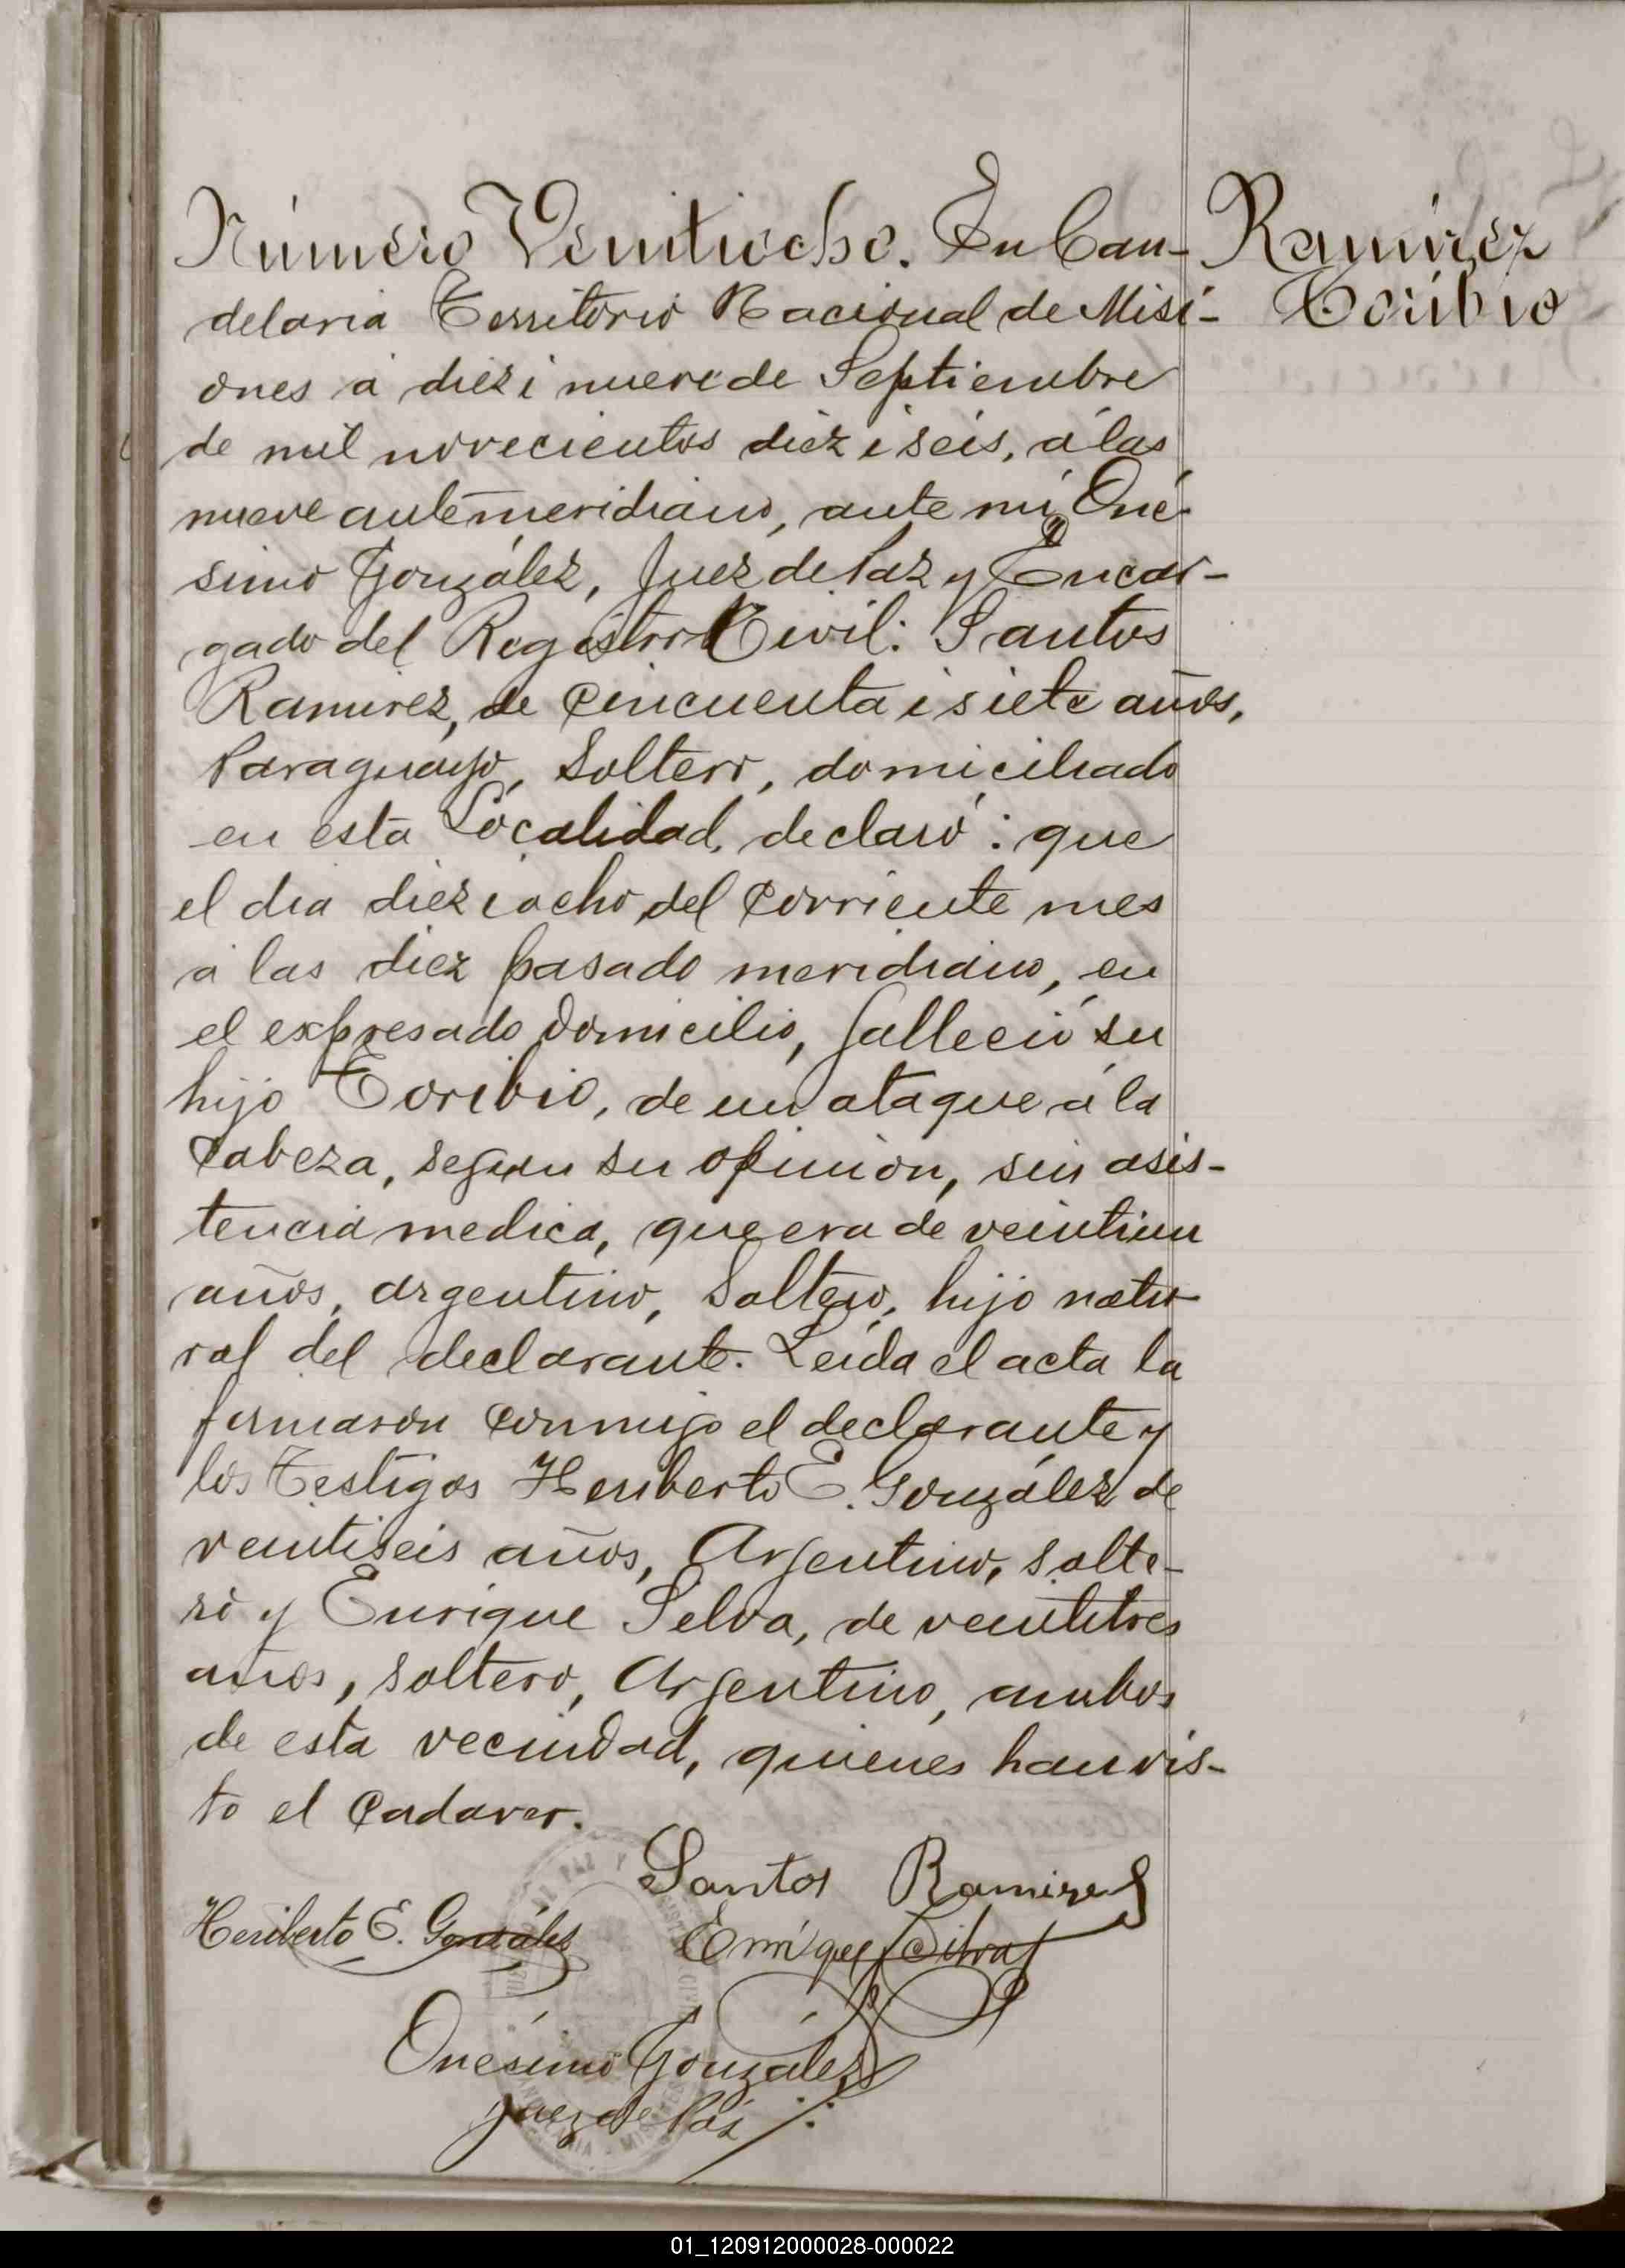 Número Veintiocho. En Can-
delaria Territorio Nacional de Misi-
ones á diez i nueve de Septiembre
de mil novecientos diez i seis, á las
nueve antemeridiano, ante mi, Oné-
simo González, Juez de Paz y Encar-
gado del Registro Civil: Santos
Ramirez, de cincuenta i siete años,
Paraguayo, Soltero, domiciliado
en esta Localidad, declaró: que
el dia diez i ocho del corriente mes
á las diez pasado meridiano, en
el expresado domicilio, falleció su
hijo Toribio, de un ataque á la
Cabeza, segun su opinión, sin asis-
tencia medica, que era de veintiun
años, argentino, Soltero, hijo natu-
ral del declarante. Leída el acta la
firmaron conmigo el declarante y
los Testigos Heriberto E. González de
veintiseis años, Argentino, solte-
ro y Enrique Selva, de veintitres
años, soltero, Argentino, ambos
de esta vecindad, quienes han vis-
to el Cadaver.
Ramirez
Toribio
Santos Ramirez
Heriberto E. González
Enrique Silva
Onésimo González
Juez de Paz
01_120912000028-000022